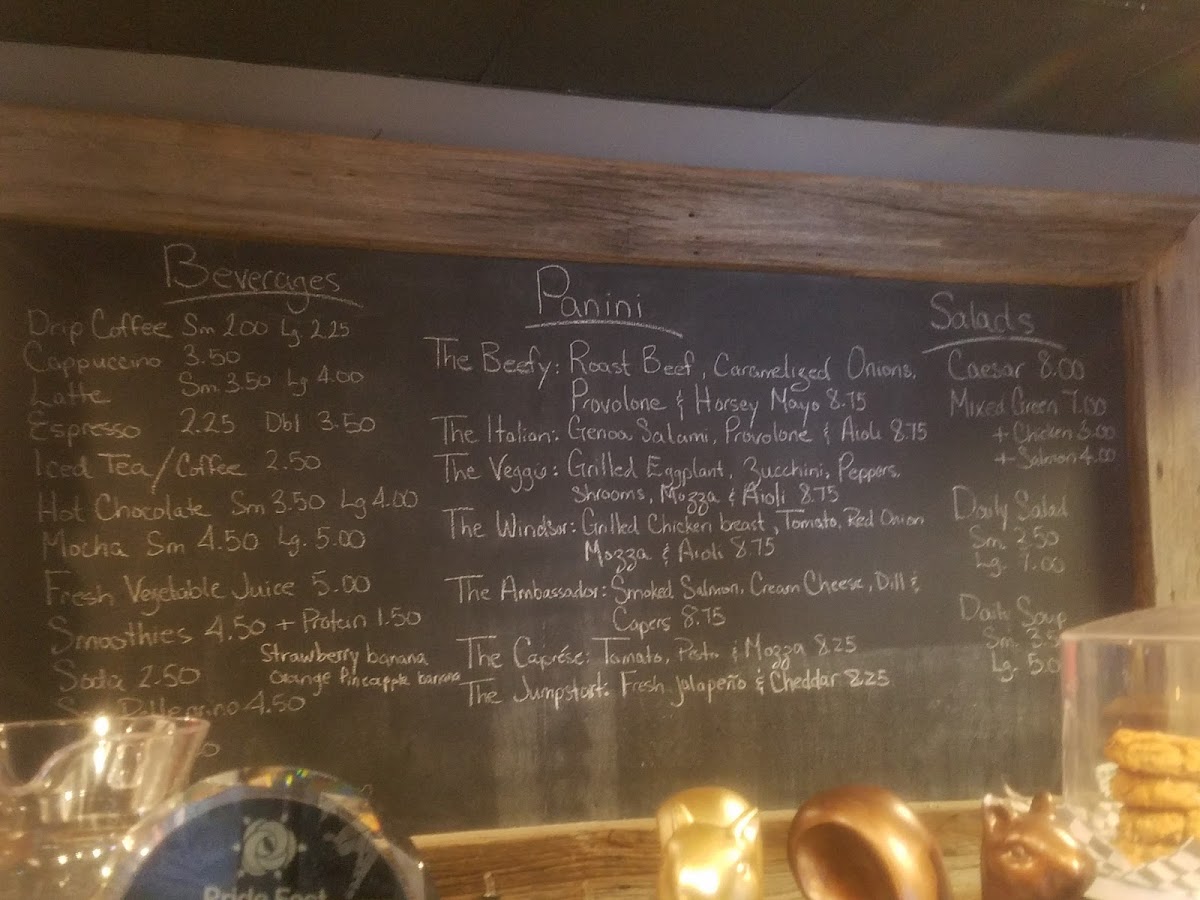 Beverages
Drip Coffee Sm 2.00 Lg 2.25
Cappuccino 3.50
Latte Sm 3.50 Lg 4.00
Espresso 2.25 Dbl 3.50
Iced Tea/Coffee 2.50
Hot Chocolate Sm 3.50 Lg 4.00
Mocha Sm 4.50 Lg. 5.00
Fresh Vegetable Juice 5.00
Smoothies 4.50 + Protein 1.50
Strawberry banana
Orange Pineapple banana
Soda 2.50
4.50
Panini
The Beefy: Roast Beef, Caramelized Onions,
Provolone & Horsey Mayo 8.75
The Italian: Genoa Salami, Provolone & Aioli 8.75
The Veggie: Grilled Eggplant, Zucchini, Peppers,
Shrooms, Mozza & Aioli 8.75
The Windsor: Grilled Chicken beast, Tomato, Red Onion
Mozza & Aioli 8.75
The Ambassador: Smoked Salmon, Cream Cheese, Dill &
Capers 8.75
The Caprése: Tomato, Pesto & Mozza 8.25
The Jumpstart: Fresh Jalapeño & Cheddar 8.25
Salads
Caesar 8.00
Mixed Green 7.00
+ Chicken 3.00
+ Salmon 4.00
Daily Salad
Sm. 2.50
Lg. 7.00
Daily Soup
Sm. 3.5
Lg. 5.0
Pride Fest